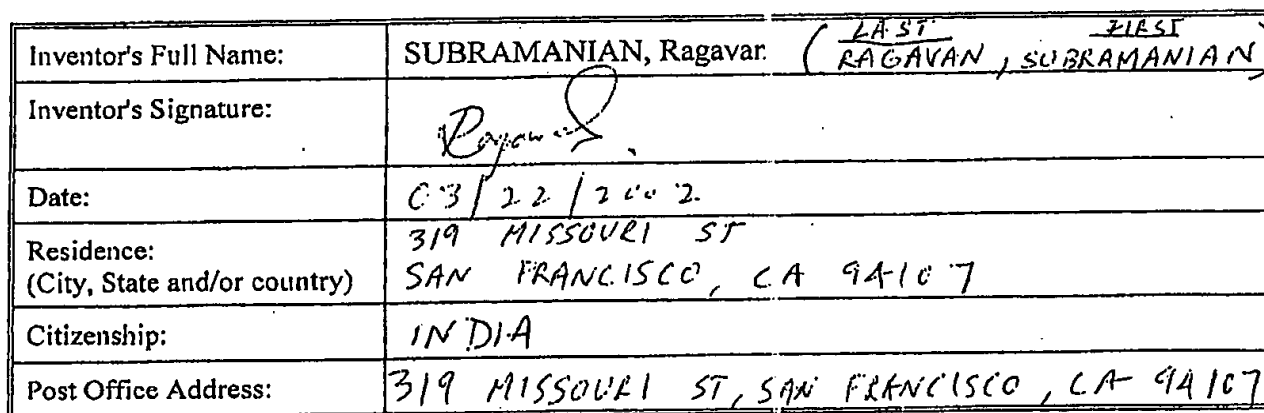 Inventor's Full Name: SUBRAMANIAN, Ragavan (LAST FIRST
RAGAVAN, SUBRAMANIAN)
Inventor's Signature: Ragavan
Date: 03/22/2002
Residence: 319 MISSOURI ST
(City, State and/or country) SAN FRANCISCO, CA 94107
Citizenship: INDIA
Post Office Address: 319 MISSOURI ST, SAN FRANCISCO, CA 94107